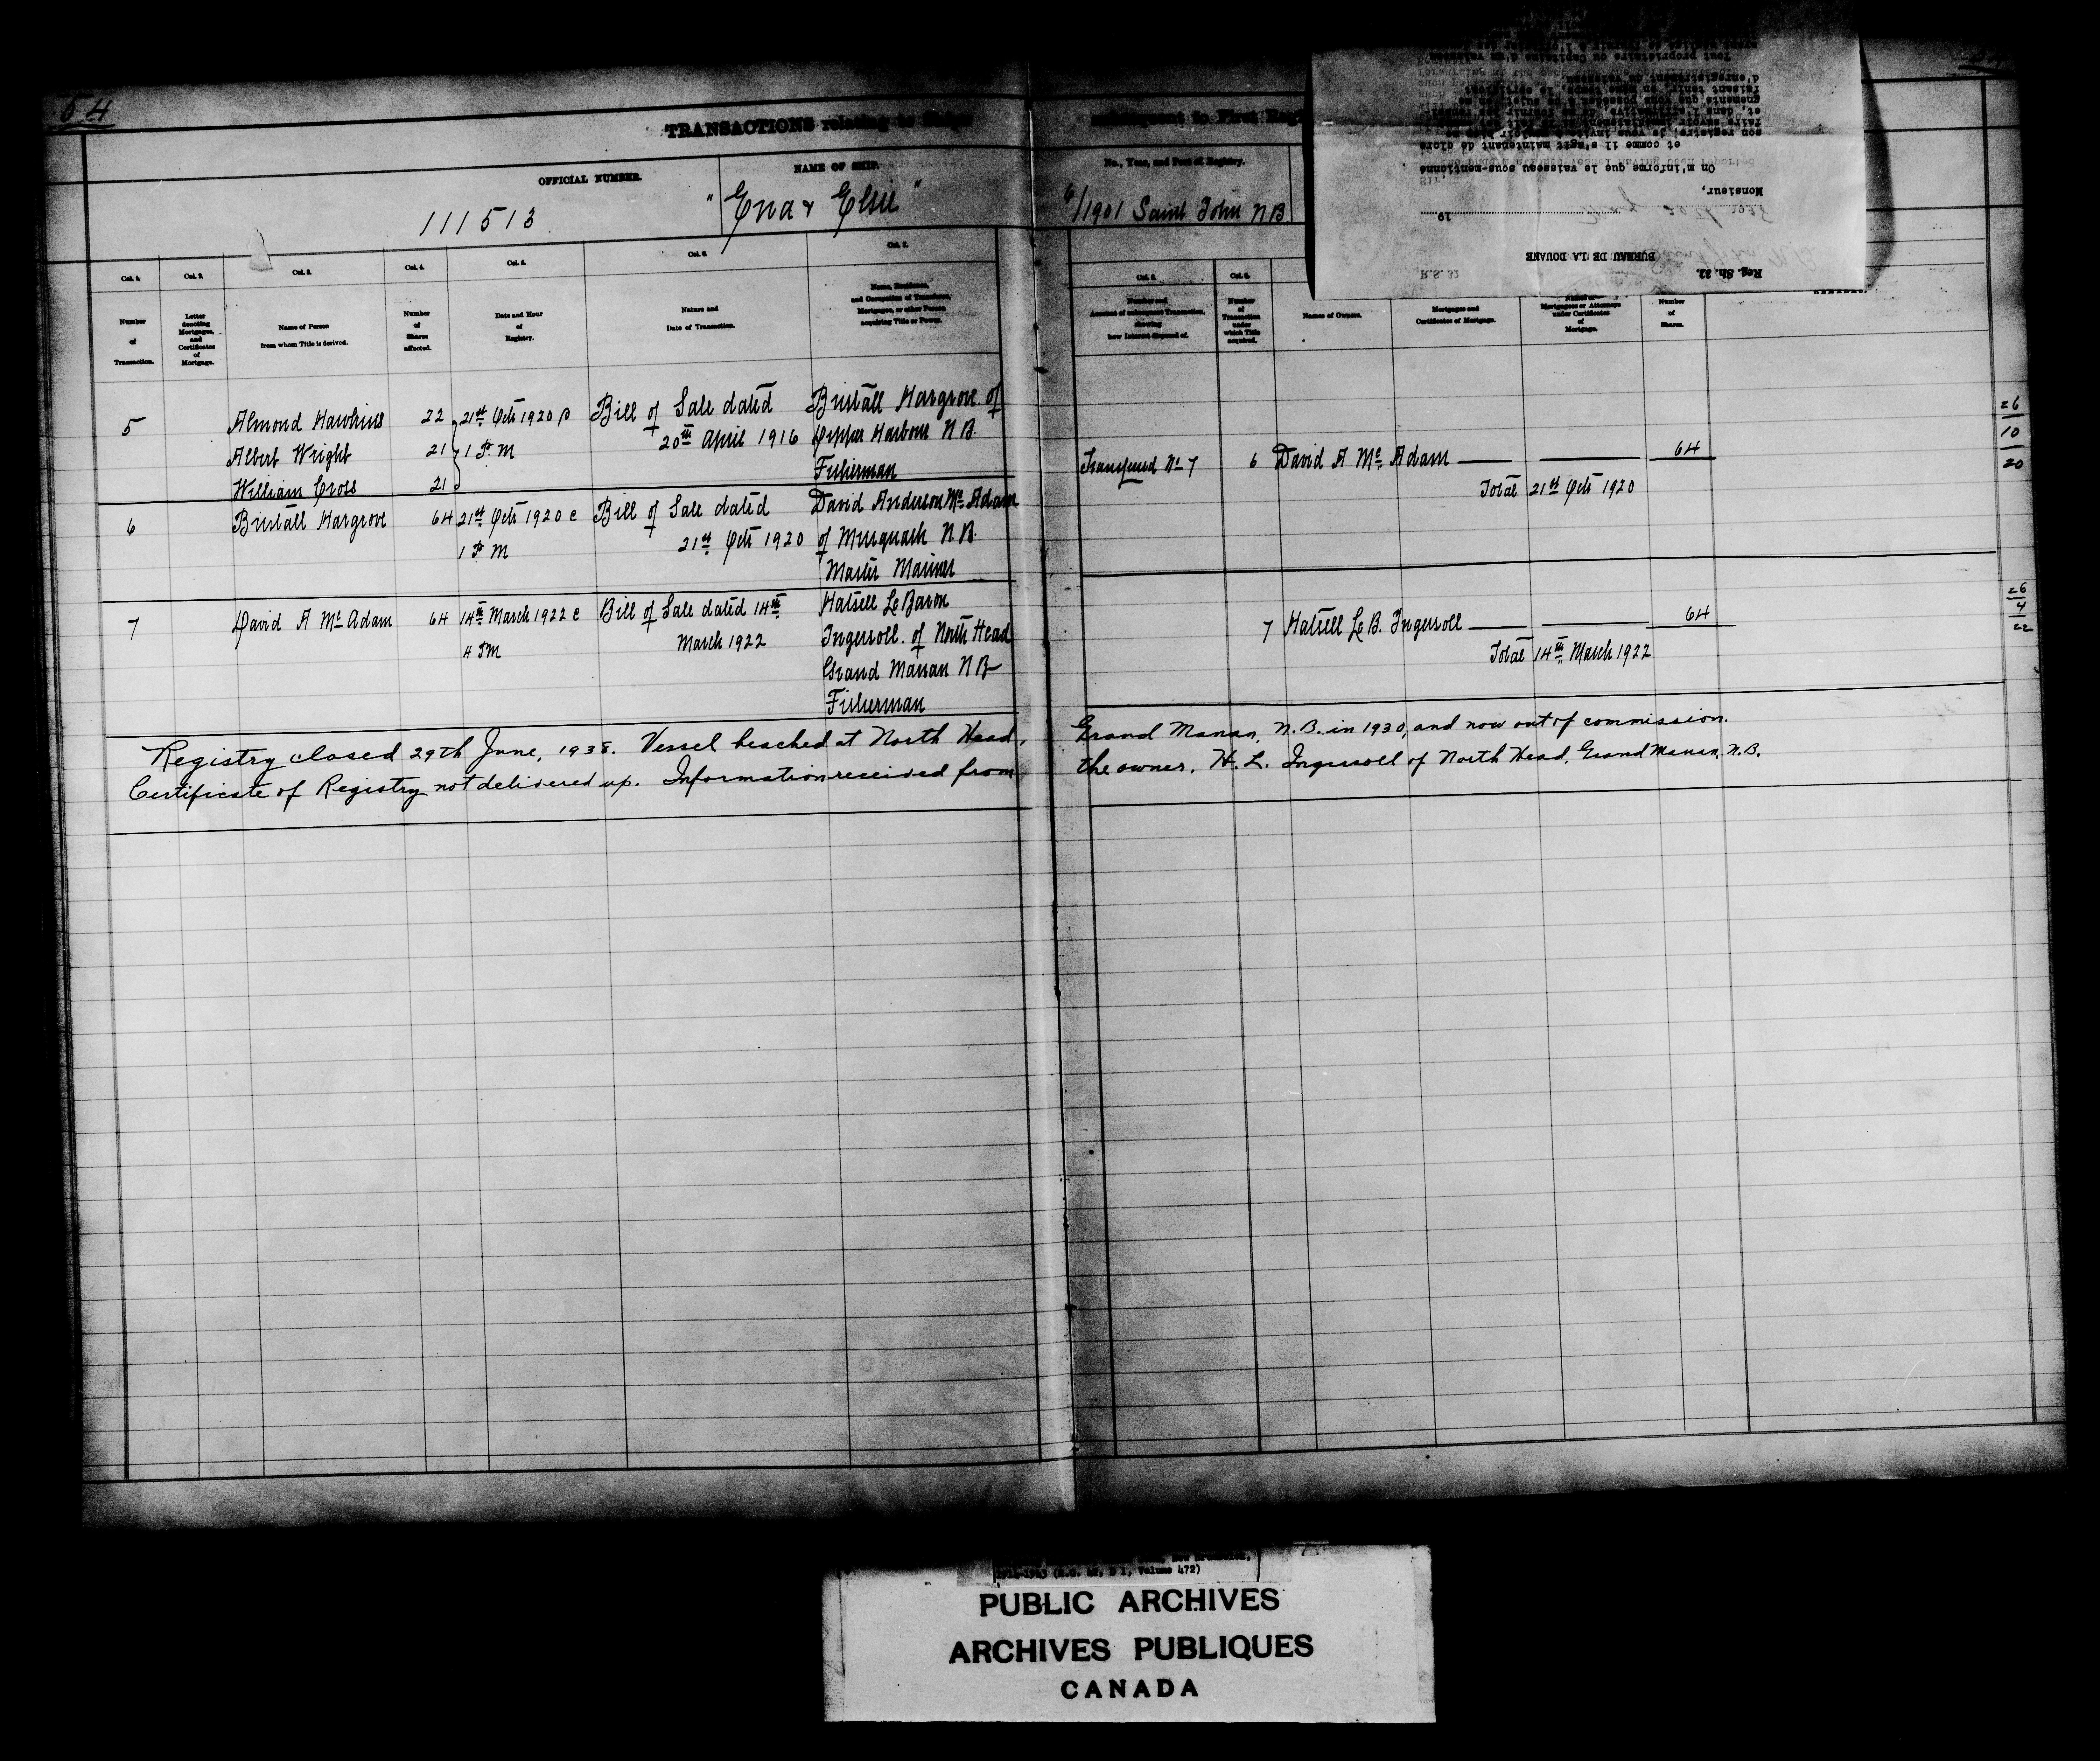 54
TRANSACTIONS relating to Ships
subsequent to First Reg
OFFICIAL NUMBER.
NAME OF SHIP.
No., Year, and Port of Registry.
111513
"Ena & Elsie"
6/1901 Saint John N B
Col. 1.
Col. 2.
Col. 3.
Col. 4.
Col. 5.
Col. 6.
Col. 7.
Number
of
Transaction.
Letter
denoting
Mortgages,
and
Certificates
of
Mortgage.
Name of Person
from whom Title is derived.
Number
of
Shares
affected.
Date and Hour
of
Registry.
Nature and
Date of Transaction.
Name, Residence,
and Occupation of Transferee,
Mortgagee, or other Person
acquiring Title or Power.
Col. 8.
Col. 9.
Number and
Account of subsequent Transaction,
showing
how Interest disposed of.
Number
of
Transaction
under
which Title
acquired.
Names of Owners.
Mortgages and
Certificates of Mortgage.
Mortgagees or Attorneys
under Certificates
of
Mortgage.
Number
of
Shares.
5
Almond Hawkins 22
Albert Wright 21
William Cross 21
21st Octr 1920
1 P. M
Bill of Sale dated
20th April 1916
Hargrove of
Harbour N B.
Fisherman
6
Hargrove 64
21st Octr 1920 @
1 P M
Bill of Sale dated
21st Octr 1920
David Anderson Mc Adam
of Musquash N B.
Master Mariner
Transferred No 7 6 David A Mc Adam 64
Total 21st Octr 1920
7
David A Mc Adam 64
14th March 1922 @
4 PM
Bill of Sale dated 14th
March 1922
Hatsell Le Baron
Ingersoll of North Head
Grand Manan N B
Fisherman
7 Hatsell Le B. Ingersoll 64
Total 14th March 1922
26
10
20
26
4
22
Registry closed 29th June, 1938. Vessel beached at North Head, Grand Manan, N.B. in 1930, and now out of commission.
Certificate of Registry not delivered up. Information received from the owner, H. L. Ingersoll of North Head, Grand Manan, N.B.
Reg. Sh. 32.
R.S. 32
BUREAU DE LA DOUANE
19
Monsieur,
On m'informe que le vaisseau sous-mentionné
et comme il s'agit maintenant de clore
son registre, je vous
d'enregistrement du vaisseau.
Tout propriétaire ou Capitaine d'un vaisseau
1, Volume 472)
PUBLIC ARCHIVES
ARCHIVES PUBLIQUES
CANADA